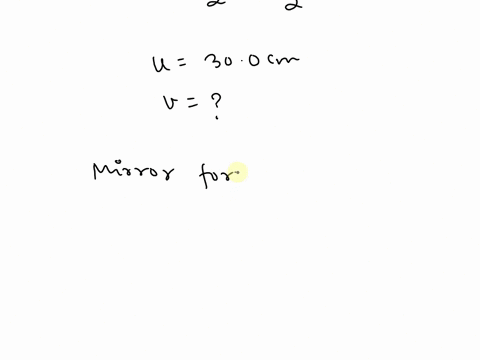 2 2
u = 30.0 cm
v = ?
Mirror for